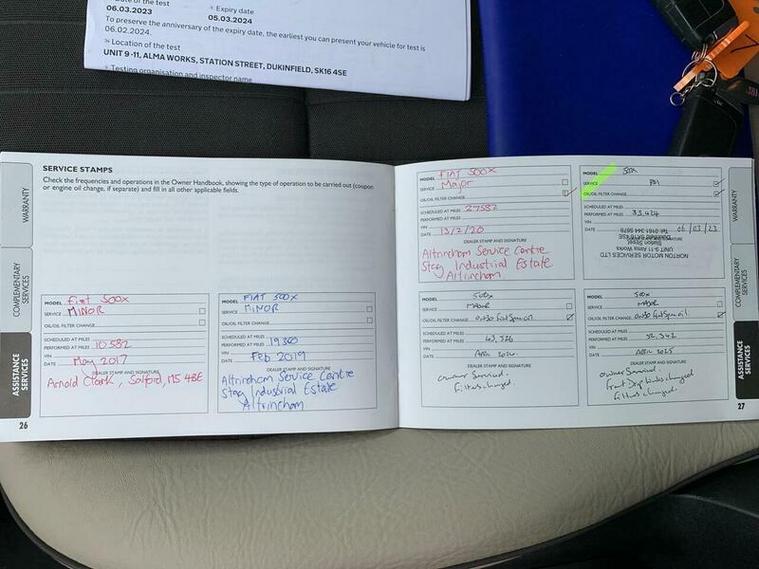 Date of the test
06.03.2023
Expiry date
05.03.2024
To preserve the anniversary of the expiry date, the earliest you can present your vehicle for test is
06.02.2024.
Location of the test
UNIT 9 -11, ALMA WORKS, STATION STREET, DUKINFIELD, SK16 4SE
Testing organisation and inspector name
SERVICE STAMPS
Check the frequencies and operations in the Owner Handbook, showing the type of operation to be carried out (coupon
or engine oil change, if separate) and fill in all other applicable fields.
WARRANTY
COMPLEMENTARY SERVICES
ASSISTANCE SERVICES
MODEL Fiat 500x
SERVICE MINOR
OIL/OIL FILTER CHANGE
SCHEDULED AT MILES
PERFORMED AT MILES 10582
VIN
DATE May 2017
DEALER STAMP AND SIGNATURE
Arnold Clark, Salford, M5 4BE
26
MODEL FIAT 500X
SERVICE MINOR
OIL/OIL FILTER CHANGE
SCHEDULED AT MILES
PERFORMED AT MILES 19360
VIN
DATE Feb 2019
DEALER STAMP AND SIGNATURE
Altrincham Service Centre
Stag Industrial Estate
Altrincham
MODEL FIAT 500X
SERVICE Major
OIL/OIL FILTER CHANGE
SCHEDULED AT MILES 27582
PERFORMED AT MILES
VIN
DATE 13/2/20
DEALER STAMP AND SIGNATURE
Altrincham Service Centre
Stag Industrial Estate
Altrincham
MODEL 500X
SERVICE
OIL/OIL FILTER CHANGE
SCHEDULED AT MILES
PERFORMED AT MILES 33,424
VIN
DATE 06/03/23
DEALER STAMP AND SIGNATURE
NORTON MOTOR SERVICES LTD
UNIT 9-11 Alma Works
Station Street
Dukinfield SK16 4SE
MODEL 500x
SERVICE MAJOR
OIL/OIL FILTER CHANGE
SCHEDULED AT MILES
PERFORMED AT MILES
VIN
DATE
DEALER STAMP AND SIGNATURE
owner Serviced.
Filters changed.
MODEL 500x
SERVICE MAJOR
OIL/OIL FILTER CHANGE
SCHEDULED AT MILES
PERFORMED AT MILES 52,342
VIN
DATE
DEALER STAMP AND SIGNATURE
owner Serviced.
changed
Filters changed.
WARRANTY
COMPLEMENTARY SERVICES
ASSISTANCE SERVICES
27